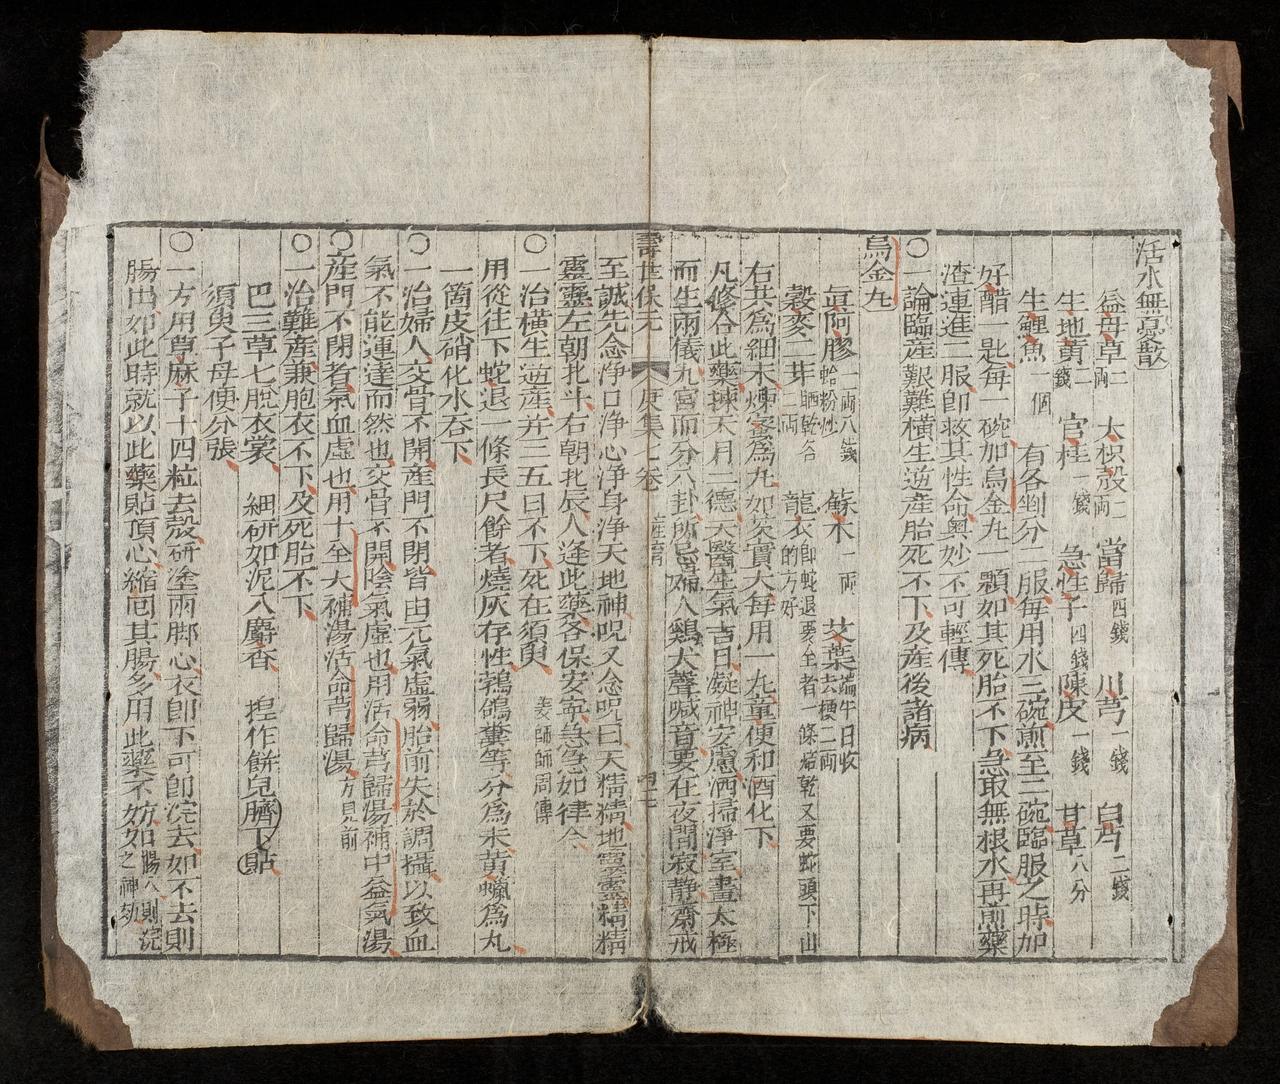 活水無憂散
益母草二兩 大枳殼一兩 當歸四錢 川芎一錢 白芍二錢
生地黃二錢 官桂一錢 急性子四錢 陳皮一錢 甘草八分
生鯉魚一個 右各剉分二服每用水三碗煎至二碗臨服之時加
好醋一匙每一碗加烏金丸一顆如其死胎不下急取無根水再煎藥
渣連進二服即救其性命奧妙不可輕傳
○一論臨產艱難橫生逆產胎死不下及產後諸病
烏金丸
真阿膠一兩八錢蛤粉炒 蘇木一兩 艾葉端午日收去梗二兩
穀麥二芽晒乾各二兩 龍衣即蛇退要全者一條焙乾又要蛇頭下山的方好
右共為細末煉蜜為丸如芡實大每用一丸童便和酒化下
凡修合此藥揀天月二德天醫生氣吉日凝神安慮洒掃淨室畫太極
而生兩儀九宮而分八卦所忌婦人鷄犬聲喊音要在夜間寂靜齋戒
壽世保元 庚集七卷 產育
至誠先念淨口淨心淨身淨天地神咒又念咒曰天精精地靈靈精精
靈靈左朝北斗右朝北辰人逢此藥各保安寧急急如律令
○一治橫生逆產并三五日不下死在須臾 姜師師周傳
用從往下蛇退一條長尺餘者燒灰存性鵓鴿糞等分為末黃蠟為丸
一箇皮硝化水吞下
○一治婦人交骨不開產門不閉皆由元氣虛弱胎前失於調攝以致血
氣不能運達而然也交骨不開陰氣虛也用活命芎歸湯補中益氣湯
○產門不閉者氣血虛也用十全大補湯活命芎歸湯方見前
○一治難產兼胞衣不下及死胎不下
巴三草七脫衣裳 細研如泥入麝香 揑作餅兒臍下貼
須臾子母便分張
○一方用草麻子十四粒去殼研塗兩脚心衣即下可即浣去如不去則
腸出如此時就以此藥貼頂心縮回其腸多用此藥不妨如腸入則浣之神効